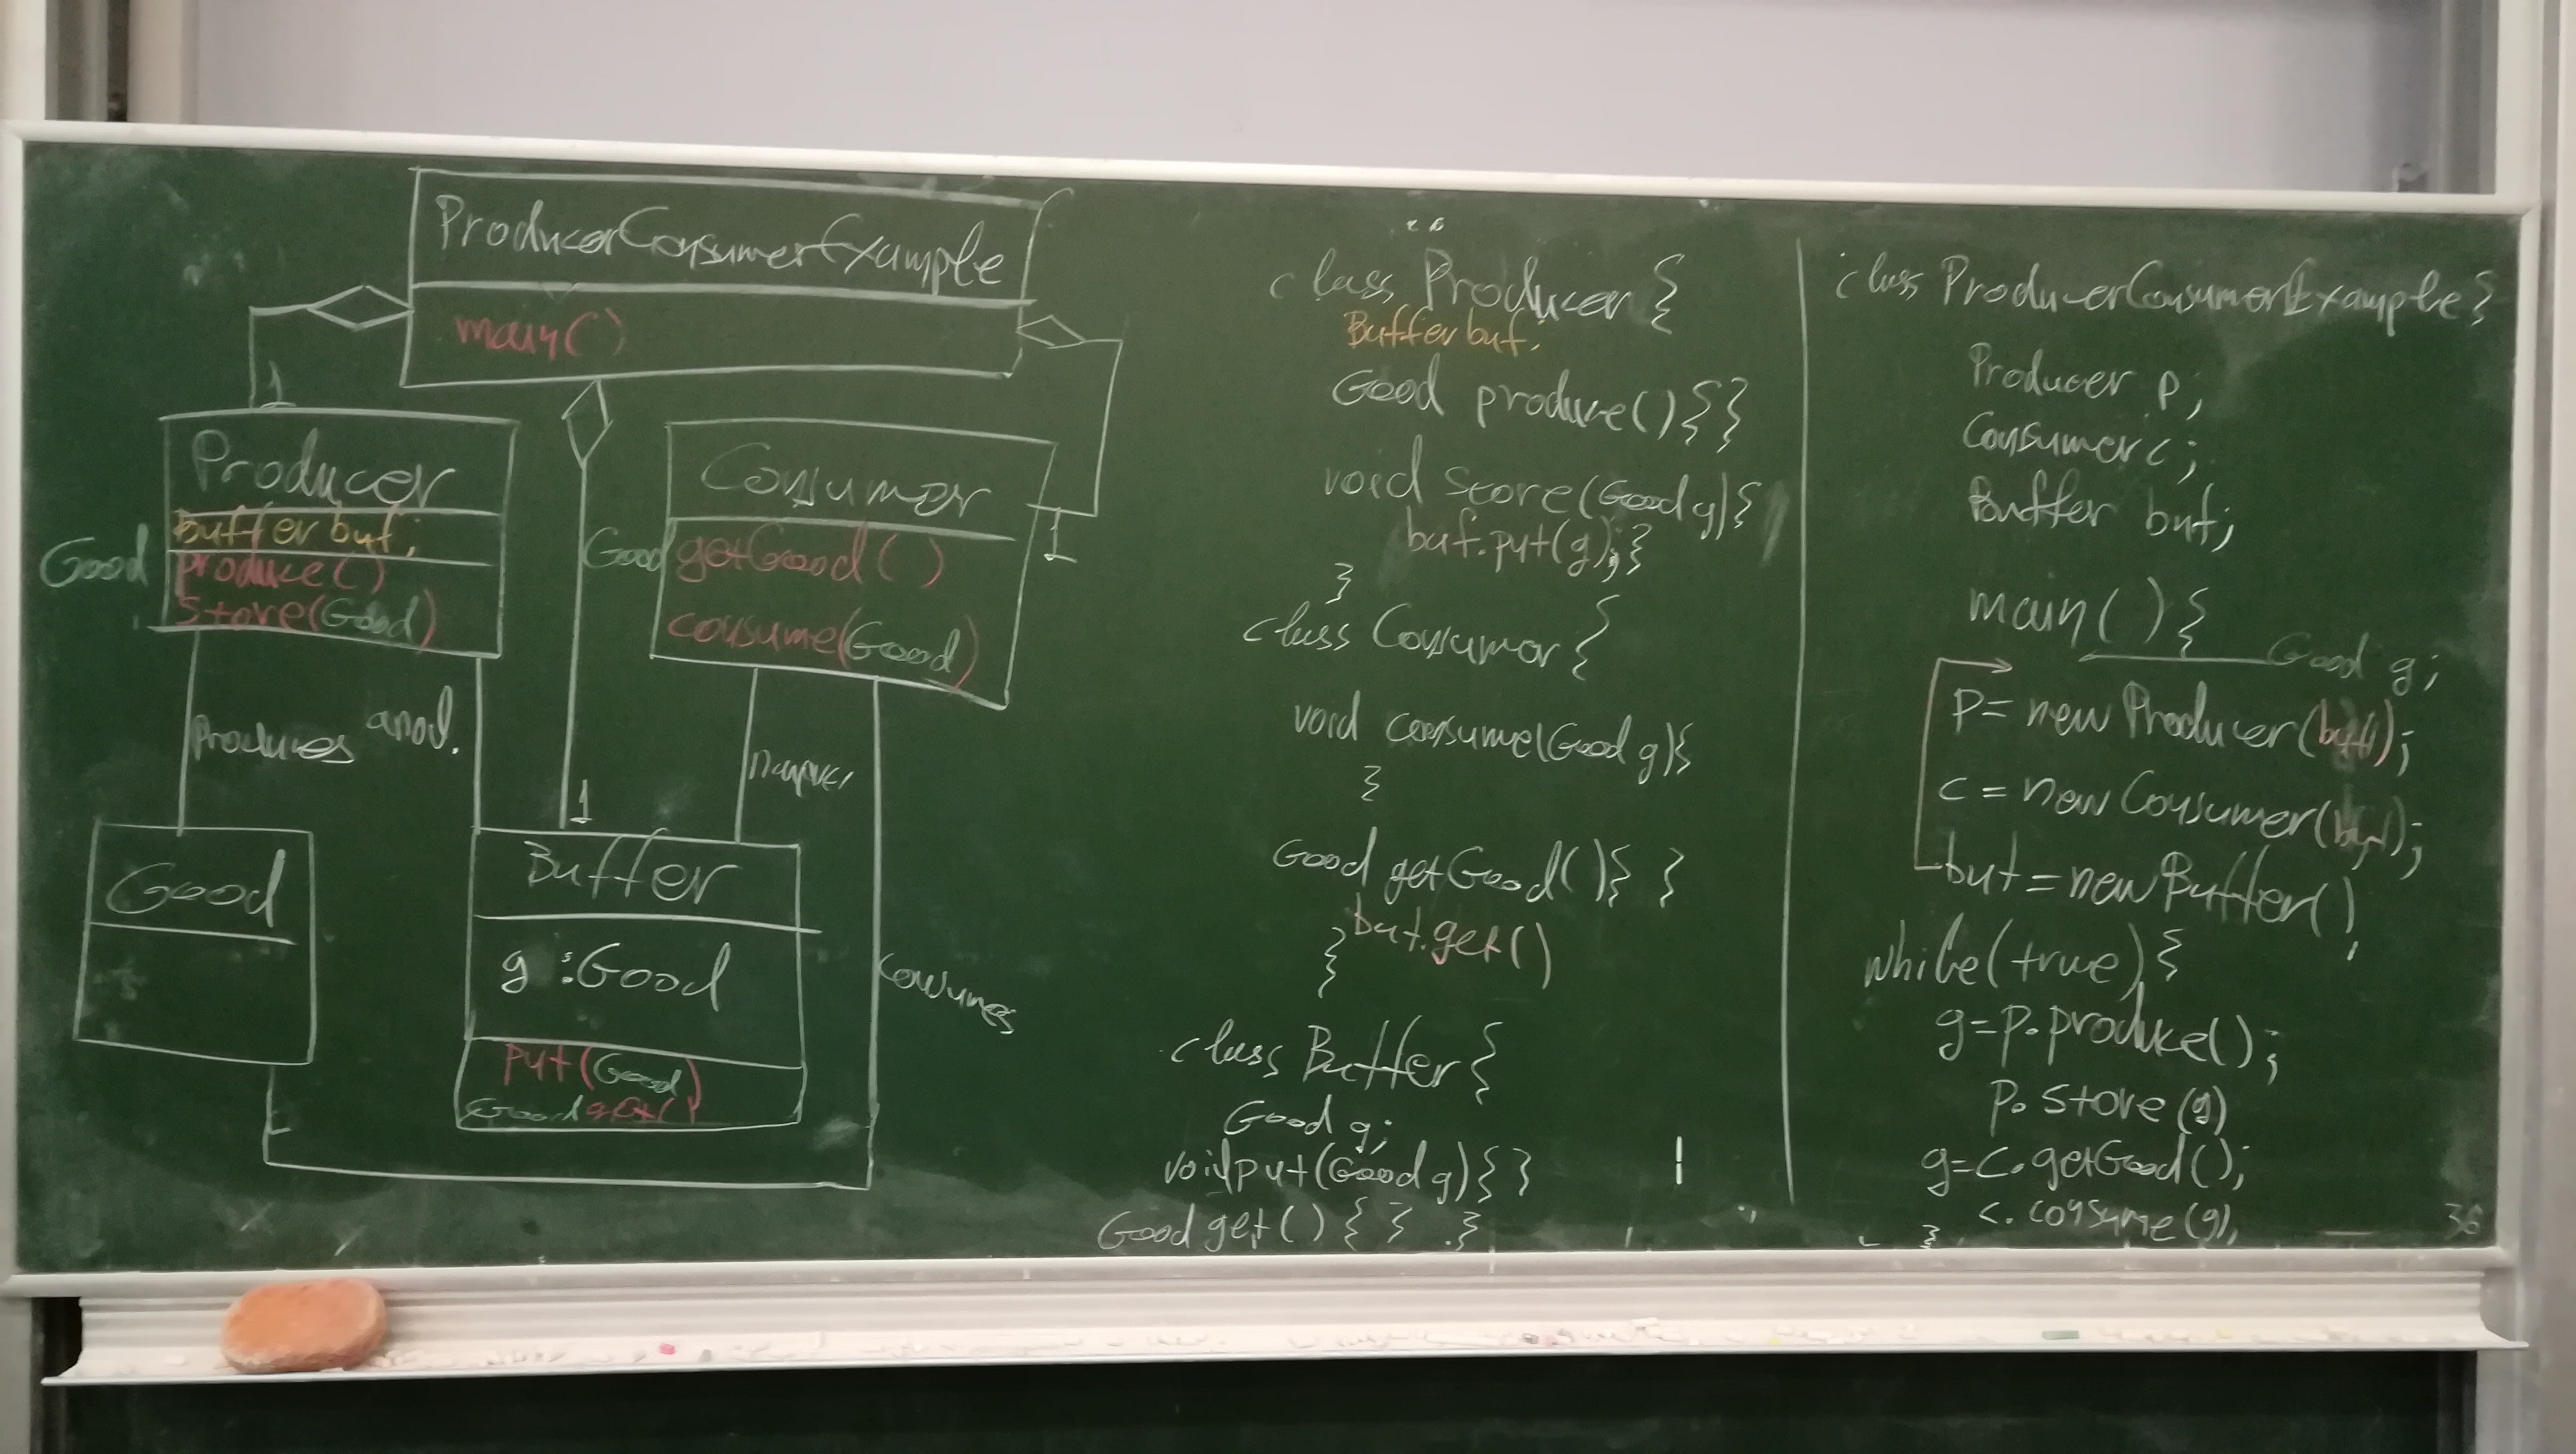 ProducerConsumerExample
main()
1
Producer
buffer buf;
Good produce()
store(Good)
Consumer
Good getGood()
consume(Good)
1
Produces
1
Good
Buffer
g :Good
put(Good)
Good get()
consumes
class Producer {
Buffer buf;
Good produce(){}
void store(Good g){
buf.put(g);}
}
class Consumer {
void consume(Good g){
}
Good getGood(){ }
buf.get()
}
class Buffer {
Good g;
void put(Good g){}
Good get() { } }
class ProducerConsumerExample {
Producer p;
Consumer c;
Buffer buf;
main() {
Good g;
p = new Producer(buf);
c = new Consumer(buf);
buf = new Buffer();
while(true){
g=p.produce();
p.store(g)
g=c.getGood();
c.consume(g);
}
36